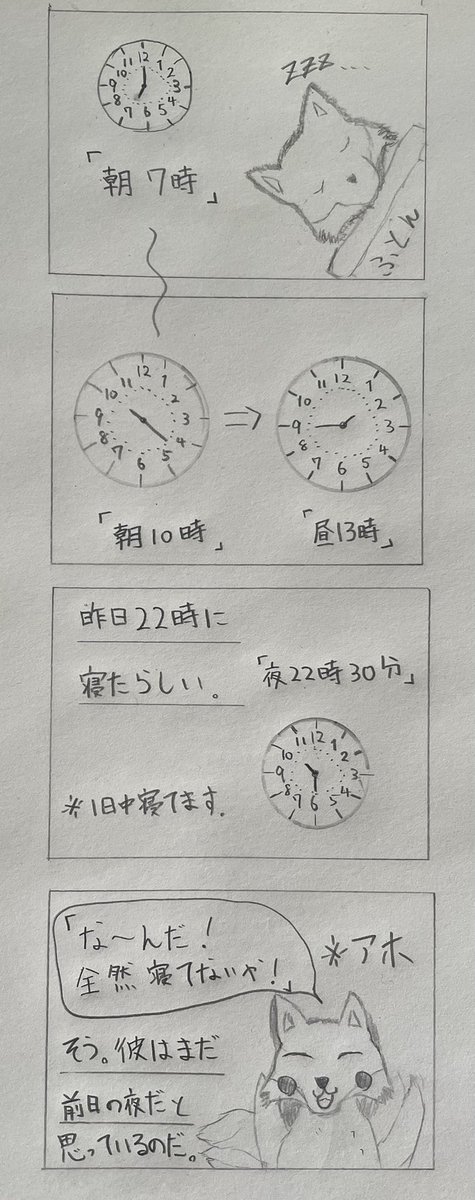 zzz....
「朝7時」
ふとん
「朝10時」
⇒
「昼13時」
昨日22時に
寝たらしい。
「夜22時30分」
※1日中寝てます.
「な〜んだ!
全然寝てないや!」
※アホ
そう。彼はまだ
前日の夜だと
思っているのだ。
12
1
2
3
4
5
6
7
8
9
10
11
12
1
2
3
4
5
6
7
8
9
10
11
12
1
2
3
4
5
6
7
8
9
10
11
12
1
2
3
4
5
6
7
8
9
10
11